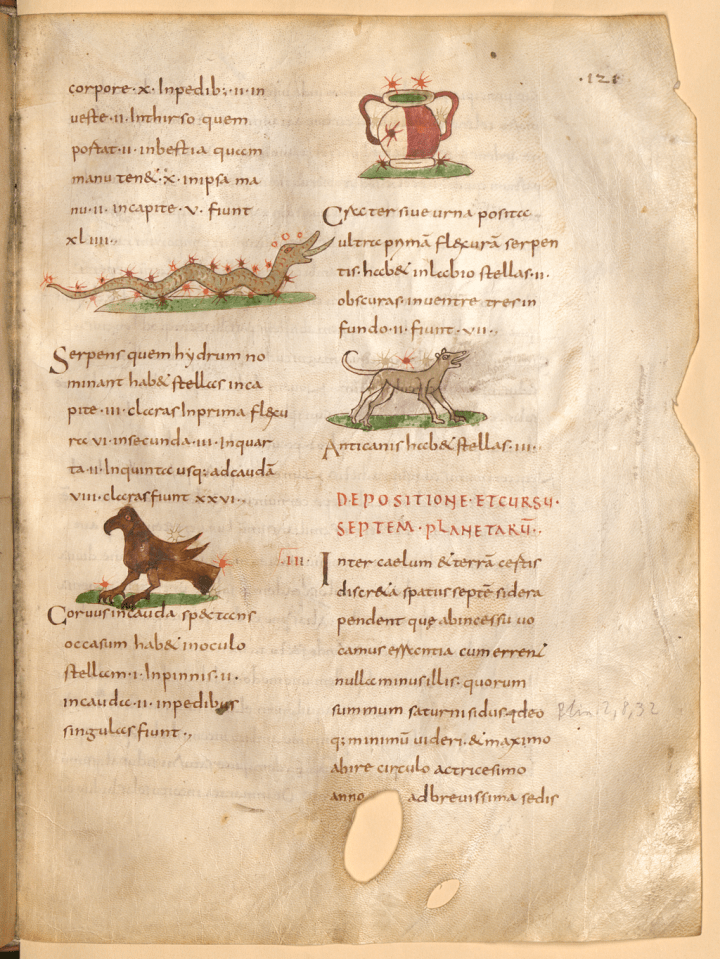 ·121·
corpore·x· Inpedib;·II·in
ueste·II·Inthirso quem
portat·II·inbestia quam
manu ten&·x·inipsa ma
nu·II·incapite·v·fiunt
xliiii·
Serpens quem hydrum no
minant hab& stellas inca
pite·III·claras Inprima flexu
ra vi·insecunda·III·Inquar
ta·II·Inquinta usq; adcaudā
viii·claras fiunt xxvi·
Coruus incauda spectans
occasum hab& inoculo
stellam·I·Inpinnis·II·
incauda·II·inpedibus
singulas fiunt·,
Crater siue urna posita
ultra primā flexurā serpen
tis·hab& inlabio stellas·II·
obscuras·inuentre tres in
fundo·II·fiunt·vii·
Anticanis hab& stellas·III·
DEPOSITIONE·ETCURSU·
SEPTEM·PLANETARŪ·
·III· Inter caelum & terrā certis
discreta spatiis septē sidera
pendent quę abincessu uo
camus errantia cum errent
nulla minus illis· quorum
summum saturni sidus·ideo
q; minimū uideri·& maximo
abire circulo ac tricesimo
anno adbreuissima sedis
Plin. 2, 8, 32